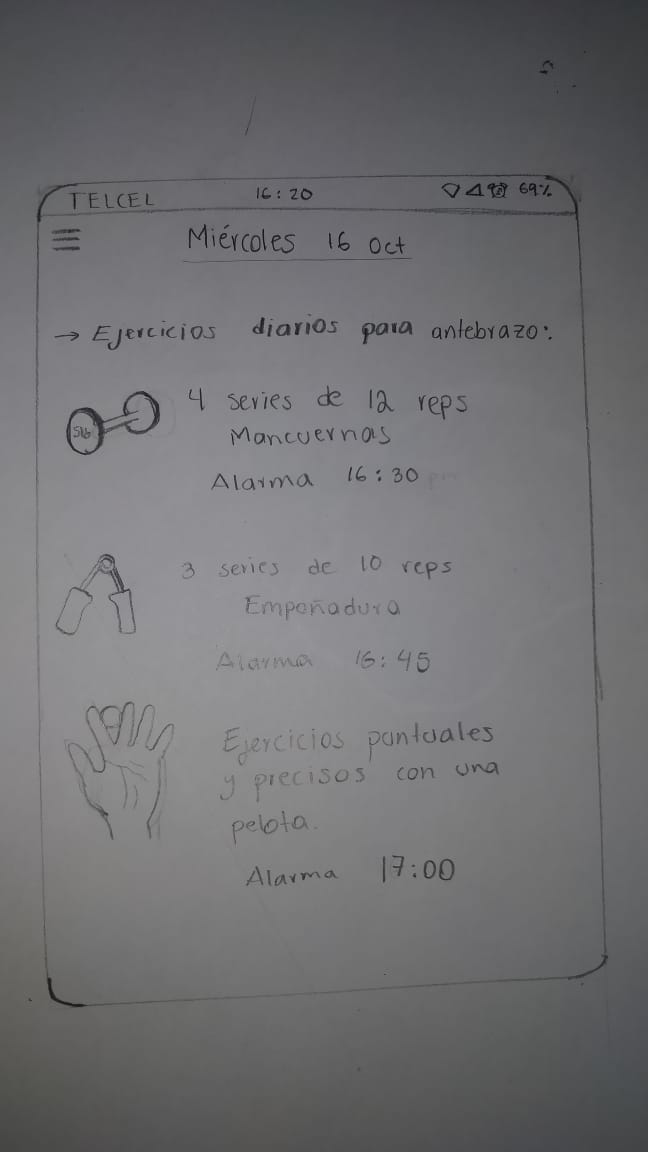 TELCEL 16:20 69%
Miércoles 16 Oct
→ Ejercicios diarios para antebrazo:
4 series de 12 reps
Mancuernas
Alarma 16:30 pm
3 series de 10 reps
Empeñadura
Alarma 16:45
Ejercicios puntuales
y precisos con una
pelota.
Alarma 17:00